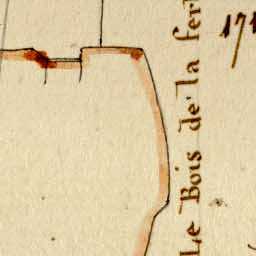 Le Bois de la fer
171